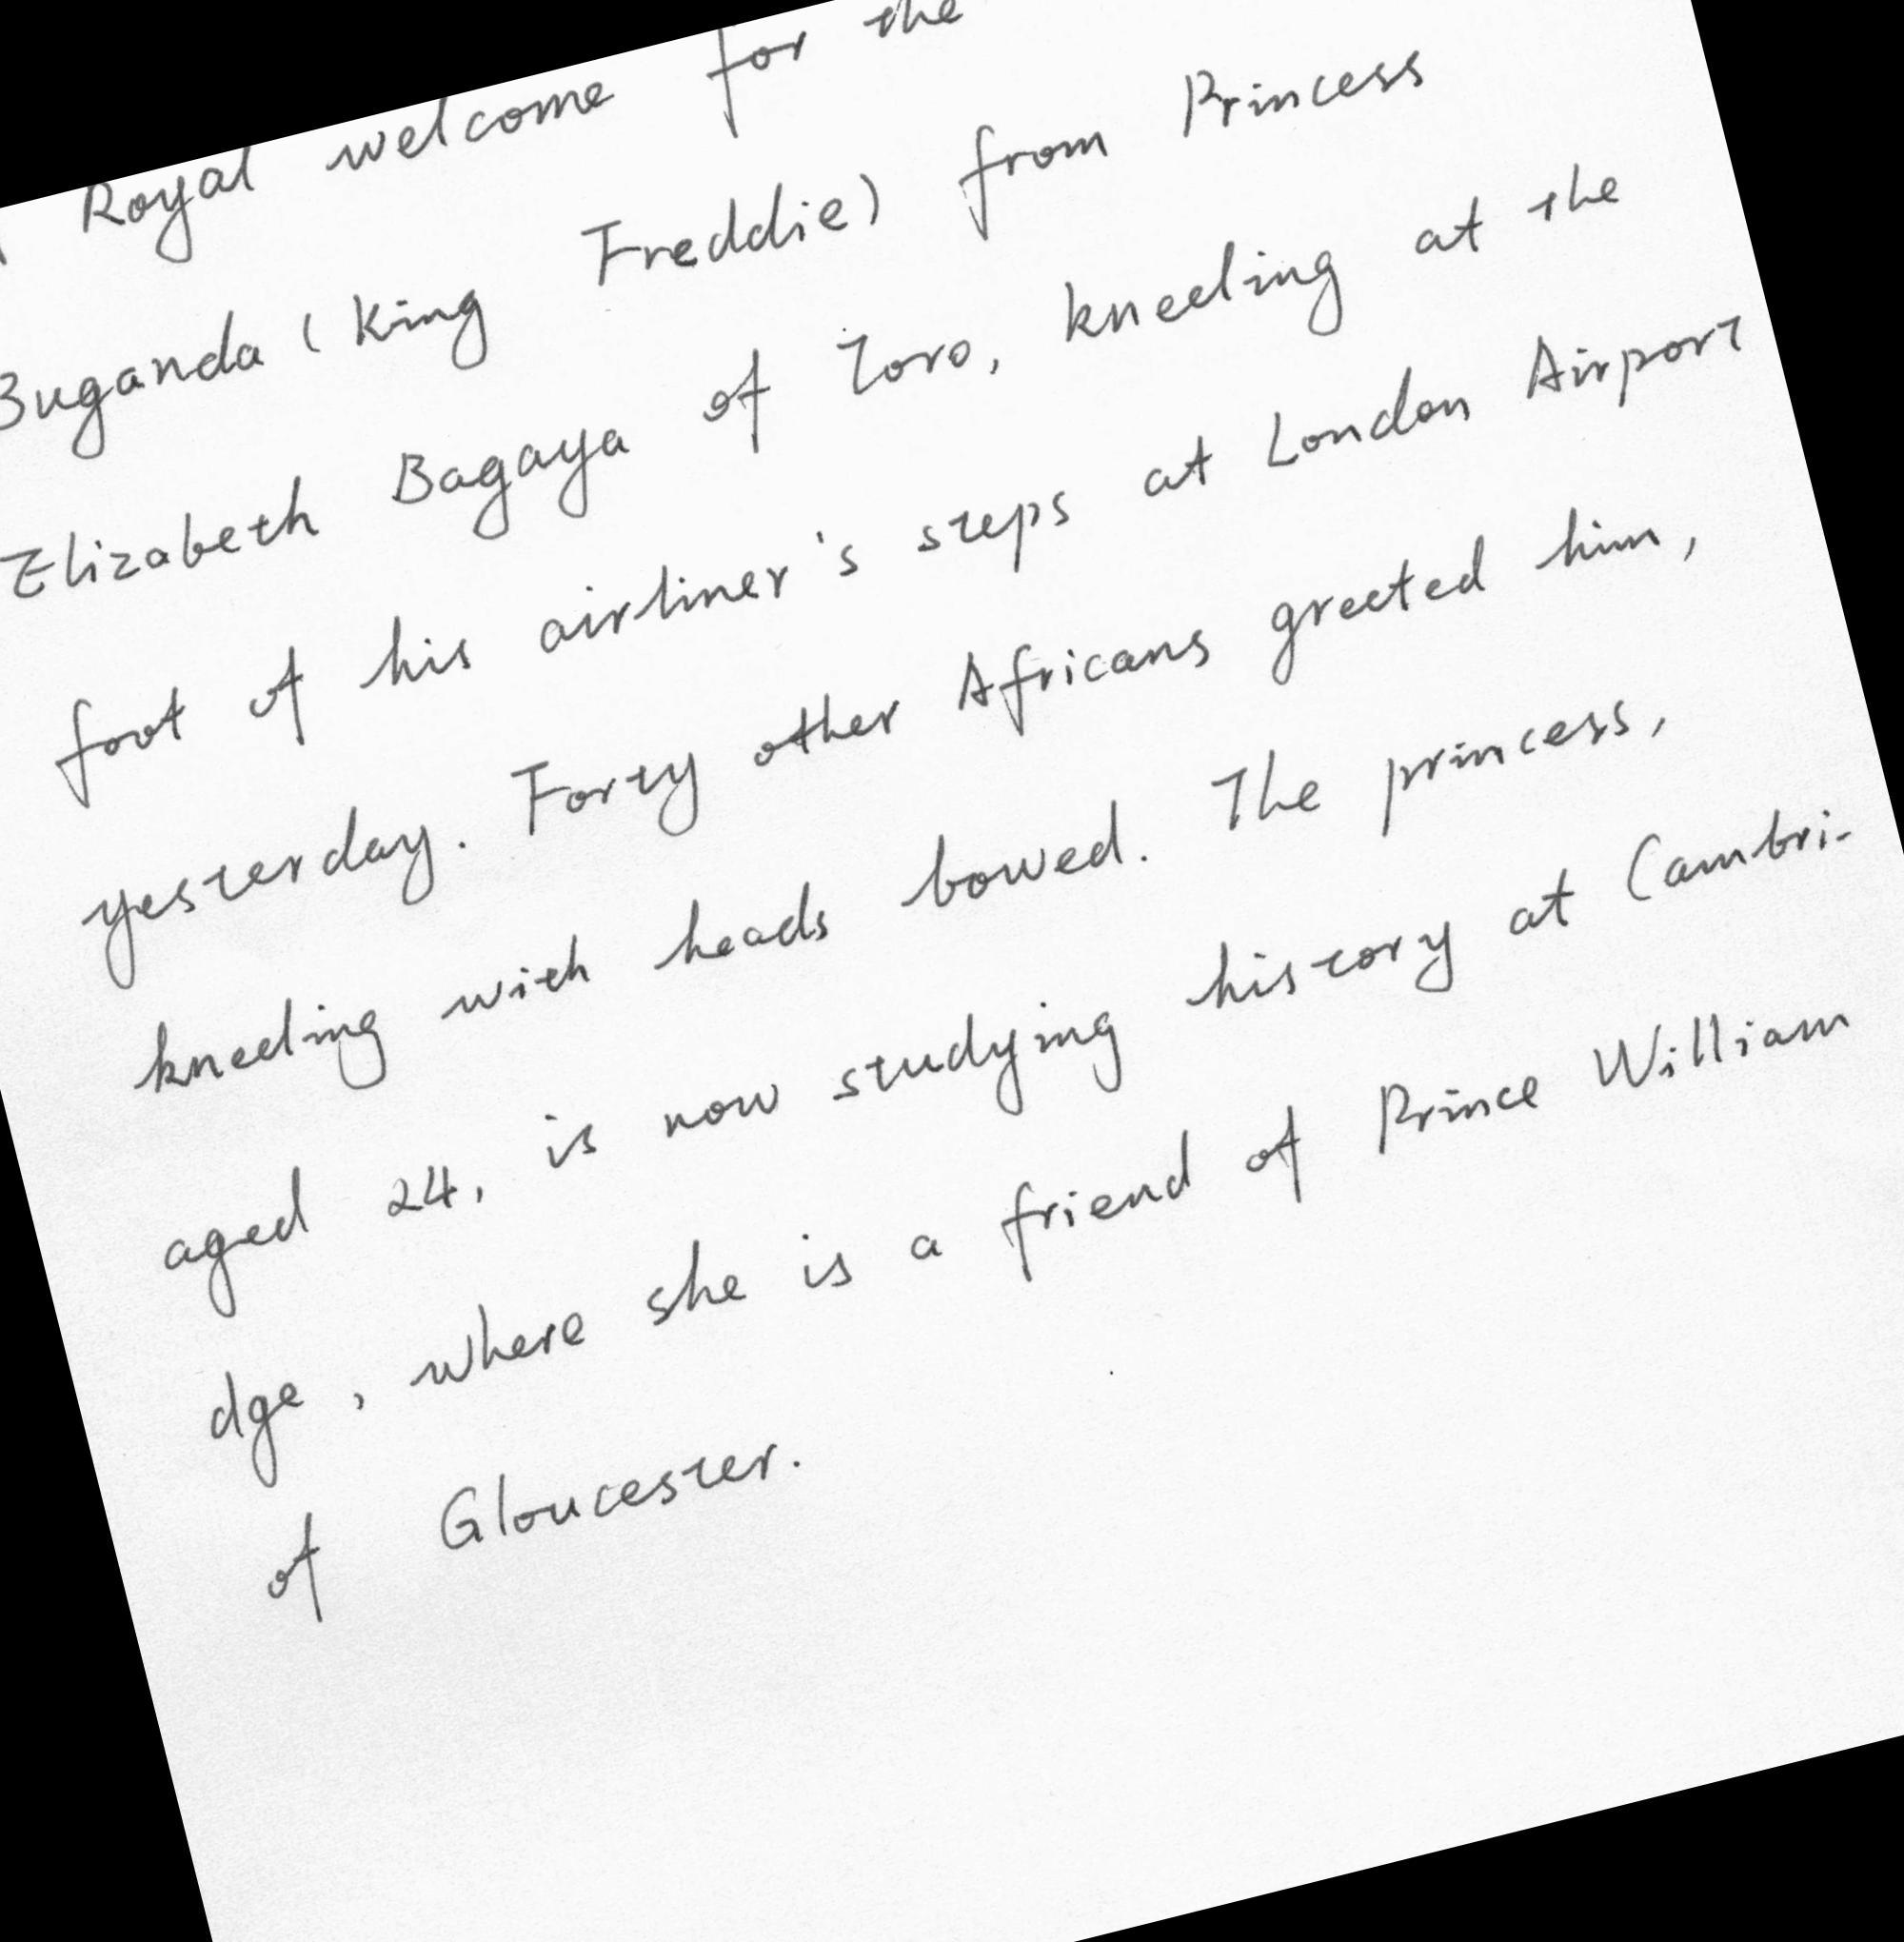 Royal welcome for the
Buganda (King Freddie) from Princess
Elizabeth Bagaya of Toro, kneeling at the
foot of his airliner's steps at London Airport
yesterday. Forty other Africans greeted him,
kneeling with heads bowed. The princess,
aged 24, is now studying history at Cambri-
dge, where she is a friend of Prince William
of Gloucester.